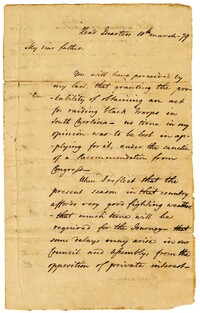 Head Quarters 10th march - 79
My dear father.
You will have perceived by
my last that granting the pro-
bability of obtaining an act
for raising black troops in
South Carolina - no time in my
opinion was to be lost in ap-
plying for it, under the sanction
of a Recommendation from
Congress -
When I reflect that the
present season in that country
affords very good fighting weather
- that much time will be
required for the Journey - that
some delays may arise in our
Council and Assembly, from the
opposition of private interest -